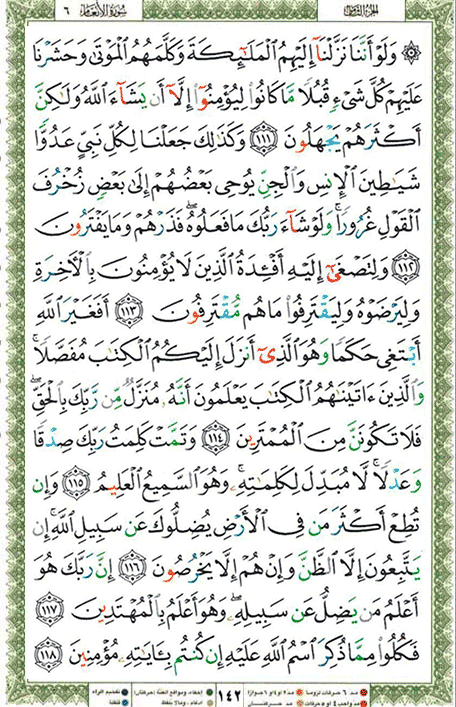 الجزء الثامن
سورة الأنعام
٦
۞ وَلَوْ أَنَّنَا نَزَّلْنَآ إِلَيْهِمُ ٱلْمَلَـٰٓئِكَةَ وَكَلَّمَهُمُ ٱلْمَوْتَىٰ وَحَشَرْنَا
عَلَيْهِمْ كُلَّ شَىْءٍ قُبُلًا مَّا كَانُوا۟ لِيُؤْمِنُوٓا۟ إِلَّآ أَن يَشَآءَ ٱللَّهُ وَلَـٰكِنَّ
أَكْثَرَهُمْ يَجْهَلُونَ ١١١ وَكَذَٰلِكَ جَعَلْنَا لِكُلِّ نَبِىٍّ عَدُوًّا
شَيَـٰطِينَ ٱلْإِنسِ وَٱلْجِنِّ يُوحِى بَعْضُهُمْ إِلَىٰ بَعْضٍ زُخْرُفَ
ٱلْقَوْلِ غُرُورًا ۚ وَلَوْ شَآءَ رَبُّكَ مَا فَعَلُوهُ ۖ فَذَرْهُمْ وَمَا يَفْتَرُونَ
١١٢ وَلِتَصْغَىٰٓ إِلَيْهِ أَفْـِٔدَةُ ٱلَّذِينَ لَا يُؤْمِنُونَ بِٱلْـَٔاخِرَةِ
وَلِيَرْضَوْهُ وَلِيَقْتَرِفُوا۟ مَا هُم مُّقْتَرِفُونَ ١١٣ أَفَغَيْرَ ٱللَّهِ
أَبْتَغِى حَكَمًا وَهُوَ ٱلَّذِىٓ أَنزَلَ إِلَيْكُمُ ٱلْكِتَـٰبَ مُفَصَّلًا ۚ
وَٱلَّذِينَ ءَاتَيْنَـٰهُمُ ٱلْكِتَـٰبَ يَعْلَمُونَ أَنَّهُۥ مُنَزَّلٌ مِّن رَّبِّكَ بِٱلْحَقِّ ۖ
فَلَا تَكُونَنَّ مِنَ ٱلْمُمْتَرِينَ ١١٤ وَتَمَّتْ كَلِمَتُ رَبِّكَ صِدْقًا
وَعَدْلًا ۚ لَّا مُبَدِّلَ لِكَلِمَـٰتِهِۦ ۚ وَهُوَ ٱلسَّمِيعُ ٱلْعَلِيمُ ١١٥ وَإِن
تُطِعْ أَكْثَرَ مَن فِى ٱلْأَرْضِ يُضِلُّوكَ عَن سَبِيلِ ٱللَّهِ ۚ إِن
يَتَّبِعُونَ إِلَّا ٱلظَّنَّ وَإِنْ هُمْ إِلَّا يَخْرُصُونَ ١١٦ إِنَّ رَبَّكَ هُوَ
أَعْلَمُ مَن يَضِلُّ عَن سَبِيلِهِۦ ۖ وَهُوَ أَعْلَمُ بِٱلْمُهْتَدِينَ ١١٧
فَكُلُوا۟ مِمَّا ذُكِرَ ٱسْمُ ٱللَّهِ عَلَيْهِ إِن كُنتُم بِـَٔايَـٰتِهِۦ مُؤْمِنِينَ ١١٨
مد ٦ حركات لزوما
مد ٢ أو ٤ أو ٦ جوازا
إخفاء، ومواقع الغنة (حركتان)
تفخيم الراء
١٤٢
مد واجب ٤ أو ٥ حركات
مد حركتان
إدغام، وما لا يلفظ
قلقلة